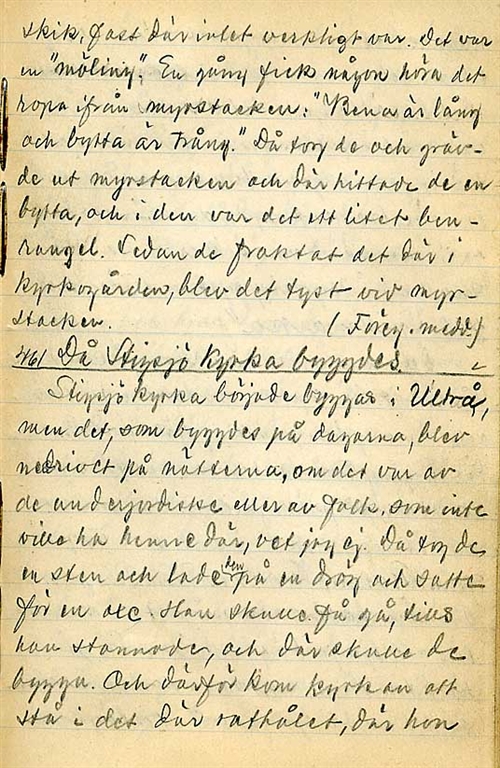 skik, fast där intet verkligt var. Det var
en "möling". En gång fick någon höra det
ropa ifrån myrstacken: "Bena är lång
och bytta är trång." Då tog de och gräv-
de ut myrstacken och där hittade de en
bytta, och i den var det ett litet ben-
rangel. Sedan de fraktat det där i
kyrkogården, blev det tyst vid myr-
stacken. (Föreg. medd.)
461 Då Stigsjö kyrka byggdes.
Stigsjö kyrka började byggas i Ultrå,
men det, som byggdes på dagarna, blev
nedrivet på nätterna, om det var av
de underjordiske eller av folk, som inte
ville ha henne där, vet jag ej. Då tog de
en sten och lade den på en drög och satte
för en oxe. Han skulle få gå, tills
han stannade, och där skulle de
bygga. Och därför kom kyrkan att
stå i det där rathålet, där hon